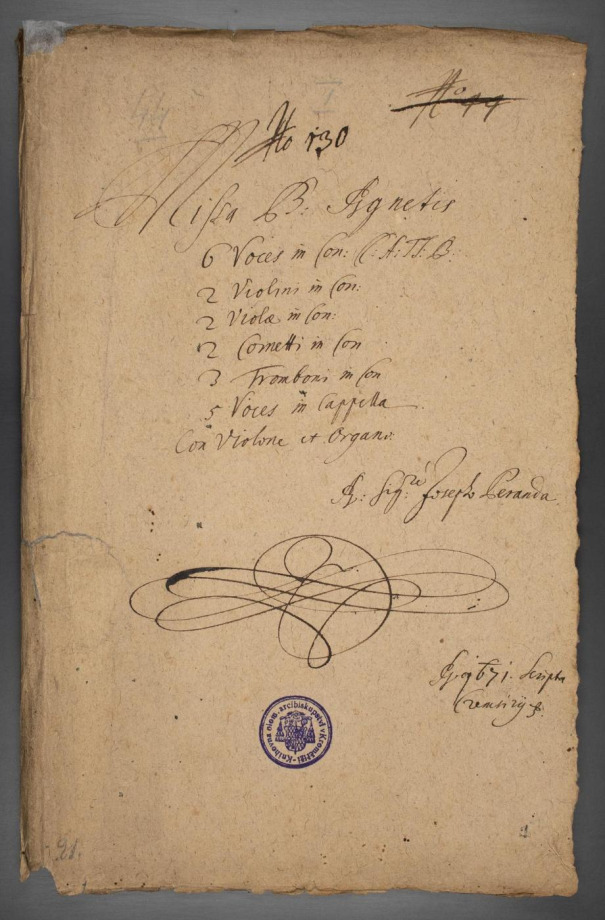 No 44
No 130
Missa B: Agnetis
6 Voces in Con: C: A: TT: B:
2 Violini in Con:
2 Violæ in Con:
2 Cornetti in Con
3 Tromboni in Con
5 Voces in Cappella
Con Violone et Organo.
A: Sig:re Joseph Peranda.
Ao 1671. Scripta
Cremsirij
Knihovna olom. arcibiskupství v Kroměříži